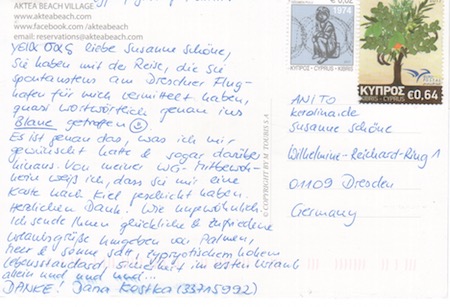 AKTEA BEACH VILLAGE
www.akteabeach.com
www.facebook.com/akteabeach
email: reservations@akteabeach.com
γεια σας liebe Susanne Schöne,
Sie haben mit der Reise, die Sie
spontanstens am Dresdner Flug-
hafen für mich vermittelt haben,
quasi wortwörtlich genau ins
Blaue getroffen
Es ist genau das, was ich mir
gewünscht hatte & sogar darüber
hinaus. Von meiner WG-Mitbewoh-
nerin weiß ich, dass Sie mir eine
Karte nach Kiel geschickt haben.
Herzlichen Dank. Wie ungewöhnlich
Ich sende Ihnen glückliche & zufriedene
Urlaubsgrüße umgeben von Palmen,
Meer & Sonne satt, zypriotischem hohem
Lebensstandard, Sicherheit im ersten Urlaub
allein und und und...
DANKE! Dana Kostka (33715992)
© COPYRIGHT BY M. TOURIS S.A
€0,02
1974
ΚΥΠΡΟΣ - CYPRUS - KIBRIS
ΚΥΠΡΟΣ
KIBRIS - CYPRUS
€0,64
ANITO
karolina.de
Susanne Schöne
Wilhelmine-Reichard-Ring 1
01109 Dresden
Germany